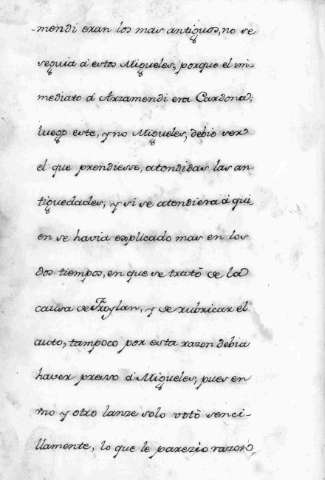 mendi eran los mas antiguos, no se
seguia á estos Migueles, porque el in
mediato á Arzamendi era Cardona;
luego este, y no Migueles, debio ser
el que prendiesse, atendidas las an
tiguedades, y si se atendiera á qui
en se havia explicado mas en los
dos tiempos, en que se trató de la
causa de Froylan, y de rubricar el
auto, tampoco por esta razon debia
haver preso á Migueles, pues en
uno y otro lanze solo votó senci-
llamente, lo que le parezio razon,